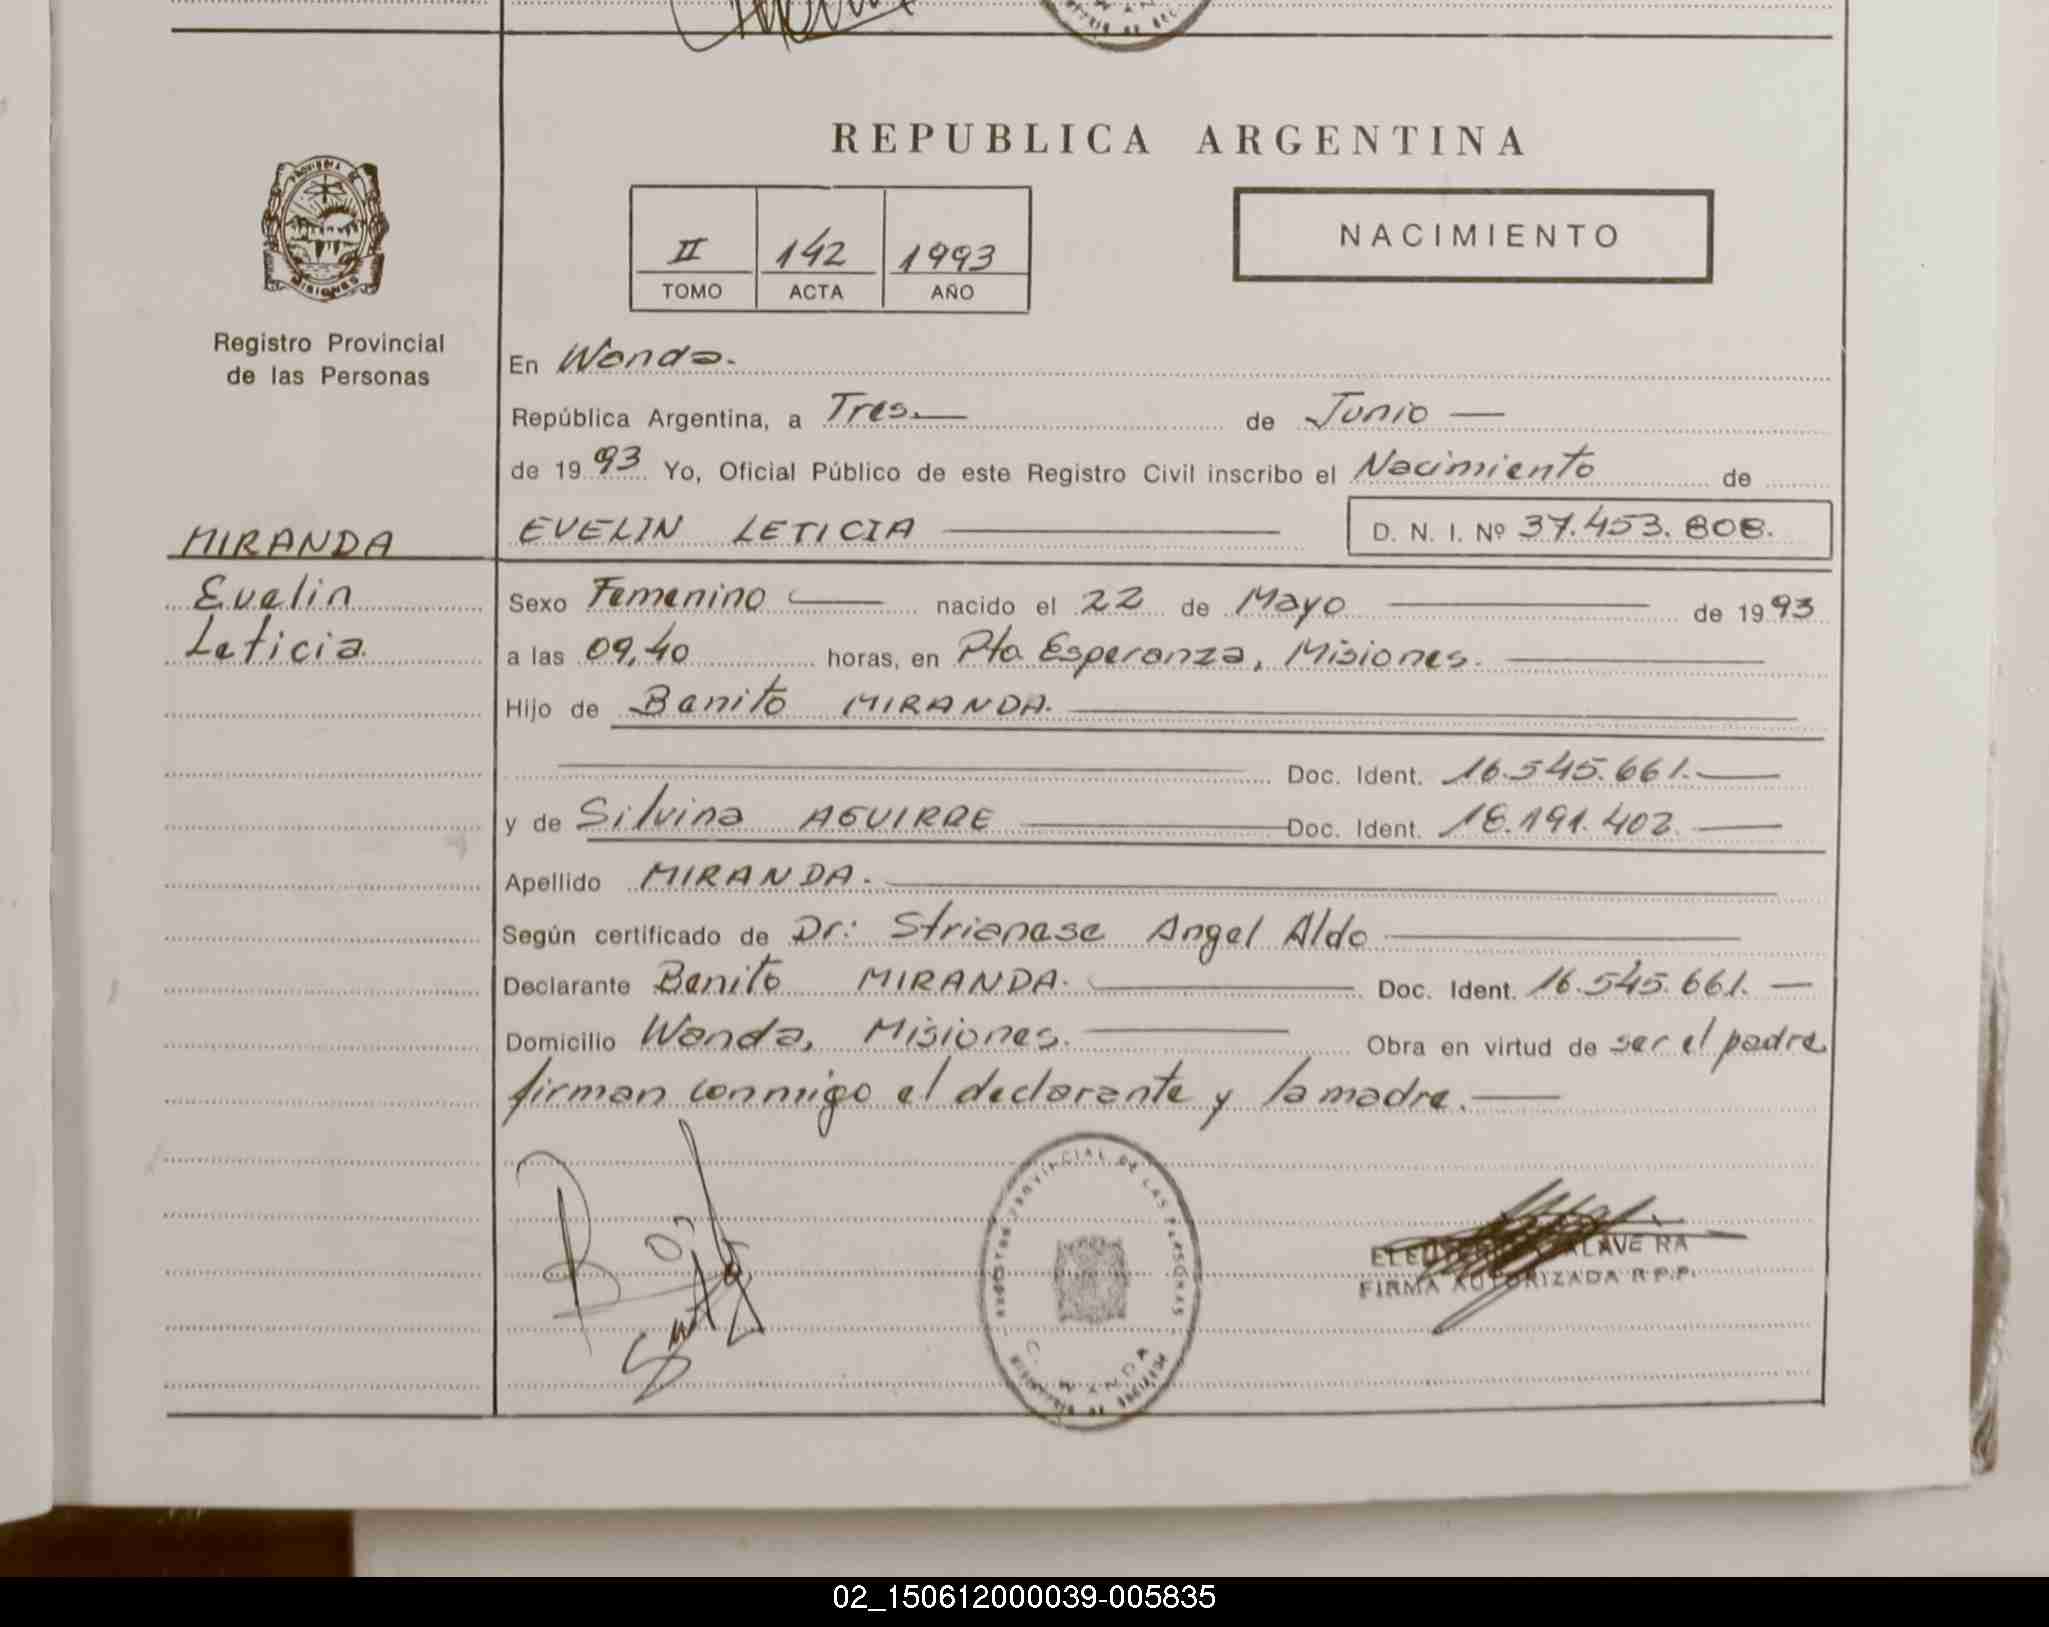 REPUBLICA ARGENTINA
PROVINCIA DE
MISIONES
II 142 1993
TOMO ACTA AÑO
NACIMIENTO
Registro Provincial
de las Personas
En Wanda.
República Argentina, a Tres. de Junio
de 1993 Yo, Oficial Público de este Registro Civil inscribo el Nacimiento de
MIRANDA
Evelin
Leticia
EVELIN LETICIA D. N. I. Nº 37.453.808.
Sexo Femenino nacido el 22 de Mayo de 1993
a las 09,40 horas, en Pto Esperanza, Misiones.
Hijo de Benito MIRANDA.
Doc. Ident. 16.545.661.
y de Silvina AGUIRRE Doc. Ident. 18.191.402.
Apellido MIRANDA.
Según certificado de Dr: Strianese Angel Aldo
Declarante Benito MIRANDA. Doc. Ident. 16.545.661.
Domicilio Wanda, Misiones. Obra en virtud de ser el padre
firman conmigo el declarante y la madre.
REGISTRO PROVINCIAL DE LAS PERSONAS
WANDA
FIRMA AUTORIZADA R.P.P.
02_150612000039-005835